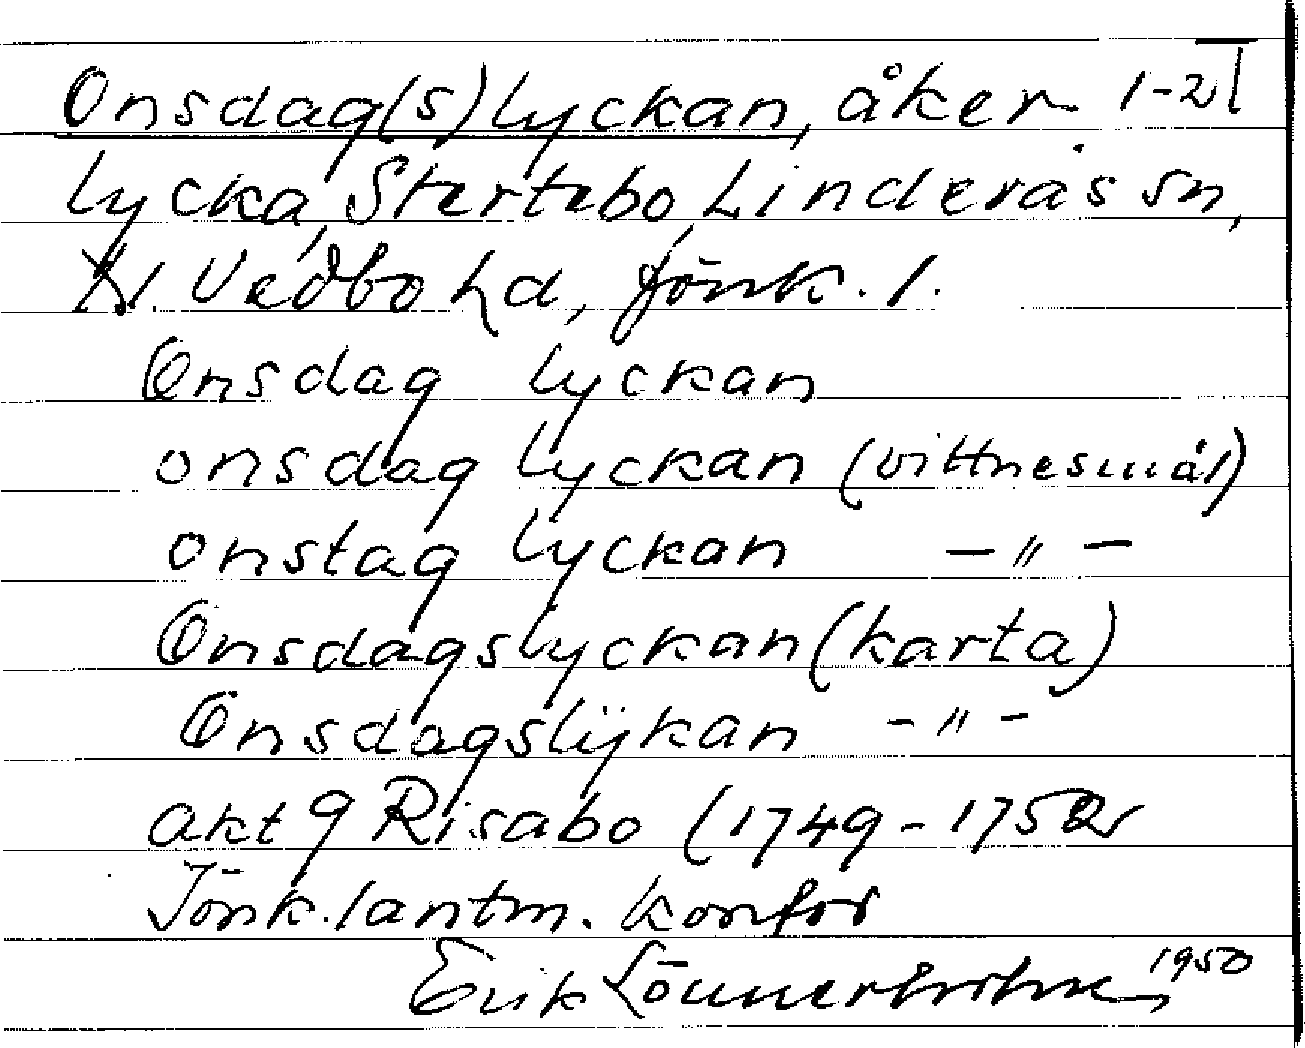 Onsdag(s)lyckan, åker 1-2
lycka, Stertebo, Linderås sn,
N. Vedbo hd, Jönk. l.
Onsdag lyckan
onsdag lyckan (vittnesmål)
onstag lyckan —〃—
Onsdagslyckan (karta)
Onsdagslÿkan -〃-
akt 9 Risabo (1749-1752
Jönk. lantm. kontor
Erik Lönnerholm, 1950